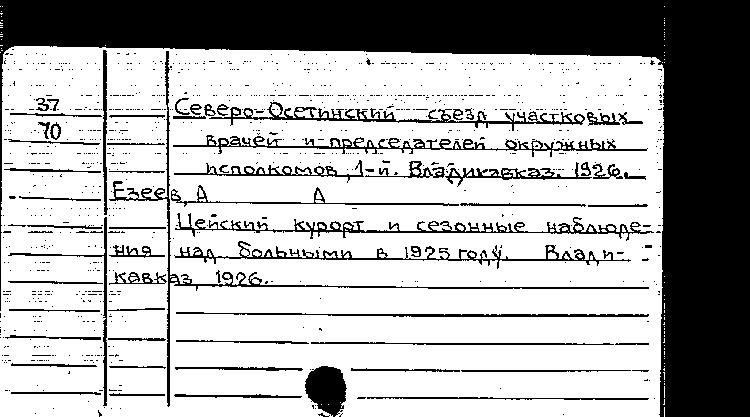 37 Северо-Осетинский съезд участковых
70 врачей и председателей окружных
исполкомов, 1-й. Владикавказ. 1926.
Езеев, А А
Цейский курорт и сезонные наблюде-
ния над больными в 1925 году. Влади-
кавказ, 1926.